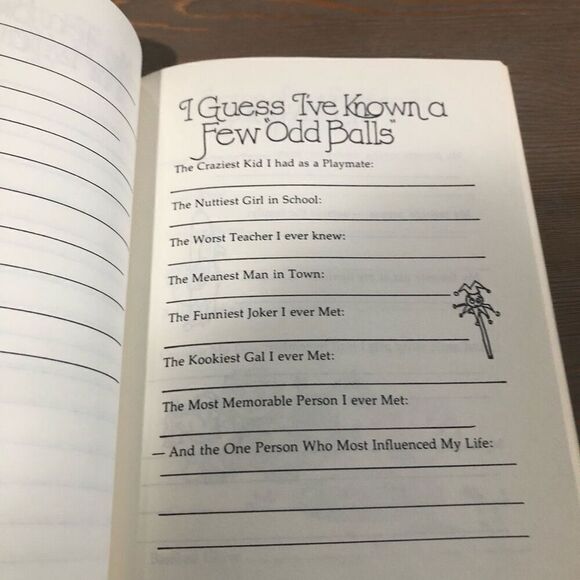 I Guess I've Known a
Few "Odd Balls"
The Craziest Kid I had as a Playmate:
The Nuttiest Girl in School:
The Worst Teacher I ever knew:
The Meanest Man in Town:
The Funniest Joker I ever Met:
The Kookiest Gal I ever Met:
The Most Memorable Person I ever Met:
— And the One Person Who Most Influenced My Life: